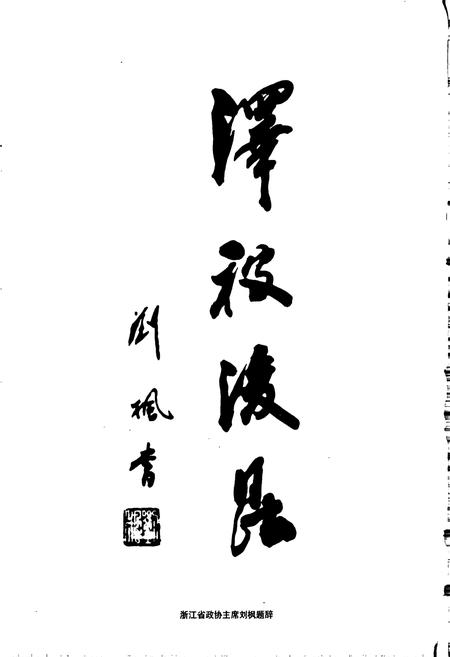 澤被後昆
劉楓書
浙江省政协主席刘枫题辞